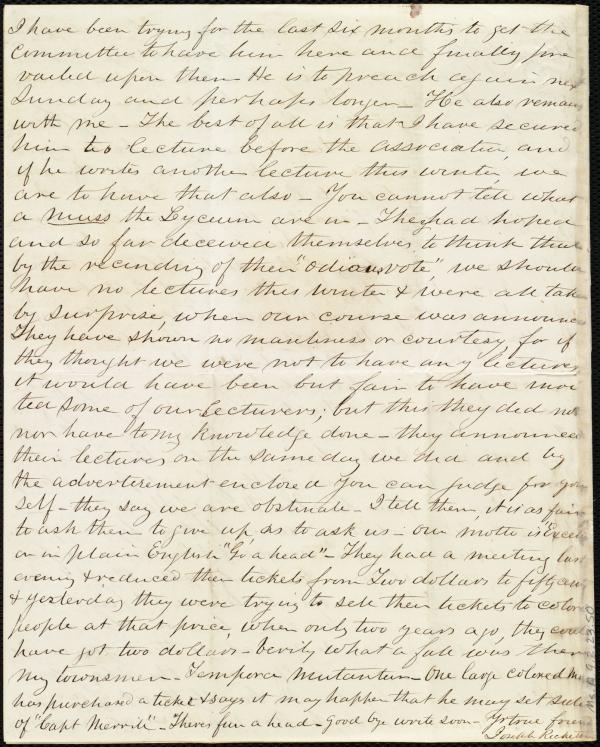 I have been trying for the last six months to get the
Committee to have him here and finally pre
vailed upon them - He is to preach again nex
Sunday and perhaps longer - He also remain
with me - The best of all is that I have secured
him to lecture before the association, and
if he writes another lecture this winter, we
are to have that also - You cannot tell what
a muss the Lyceum are in - They had hoped
and so far deceived themselves to think that
by the recinding of their "odious vote", we should
have no lectures this winter & were all tak
by surprise, when our course was announce
They have shown no manliness or courtesy, for if
they thought we were not to have any lectures,
it would have been but fair to have invi
ted some of our Lecturers; but this they did no
nor have to my knowledge done - they announced
their lectures on the same day we did and by
the advertisement enclosed you can judge for you
self - they say we are obstinate - I tell them, it is as fair
to ask them to give up, as to ask us - our motto is Excel
or in plain English "Go a head" - They had a meeting last
evening & reduced their tickets from Two dollars to fifty cen
& yesterday they were trying to sell their tickets to colore
people at that price, when only two years ago, they could
have got two dollars - Verily what a fall was there
my townsmen - Tempora mutantur - One large colored ma
has purchased a ticket & says it may happen that he may set side
of "Capt Merrill" - Theres fun a head - Good bye write soon - Yr true friend
Joseph Ricketson